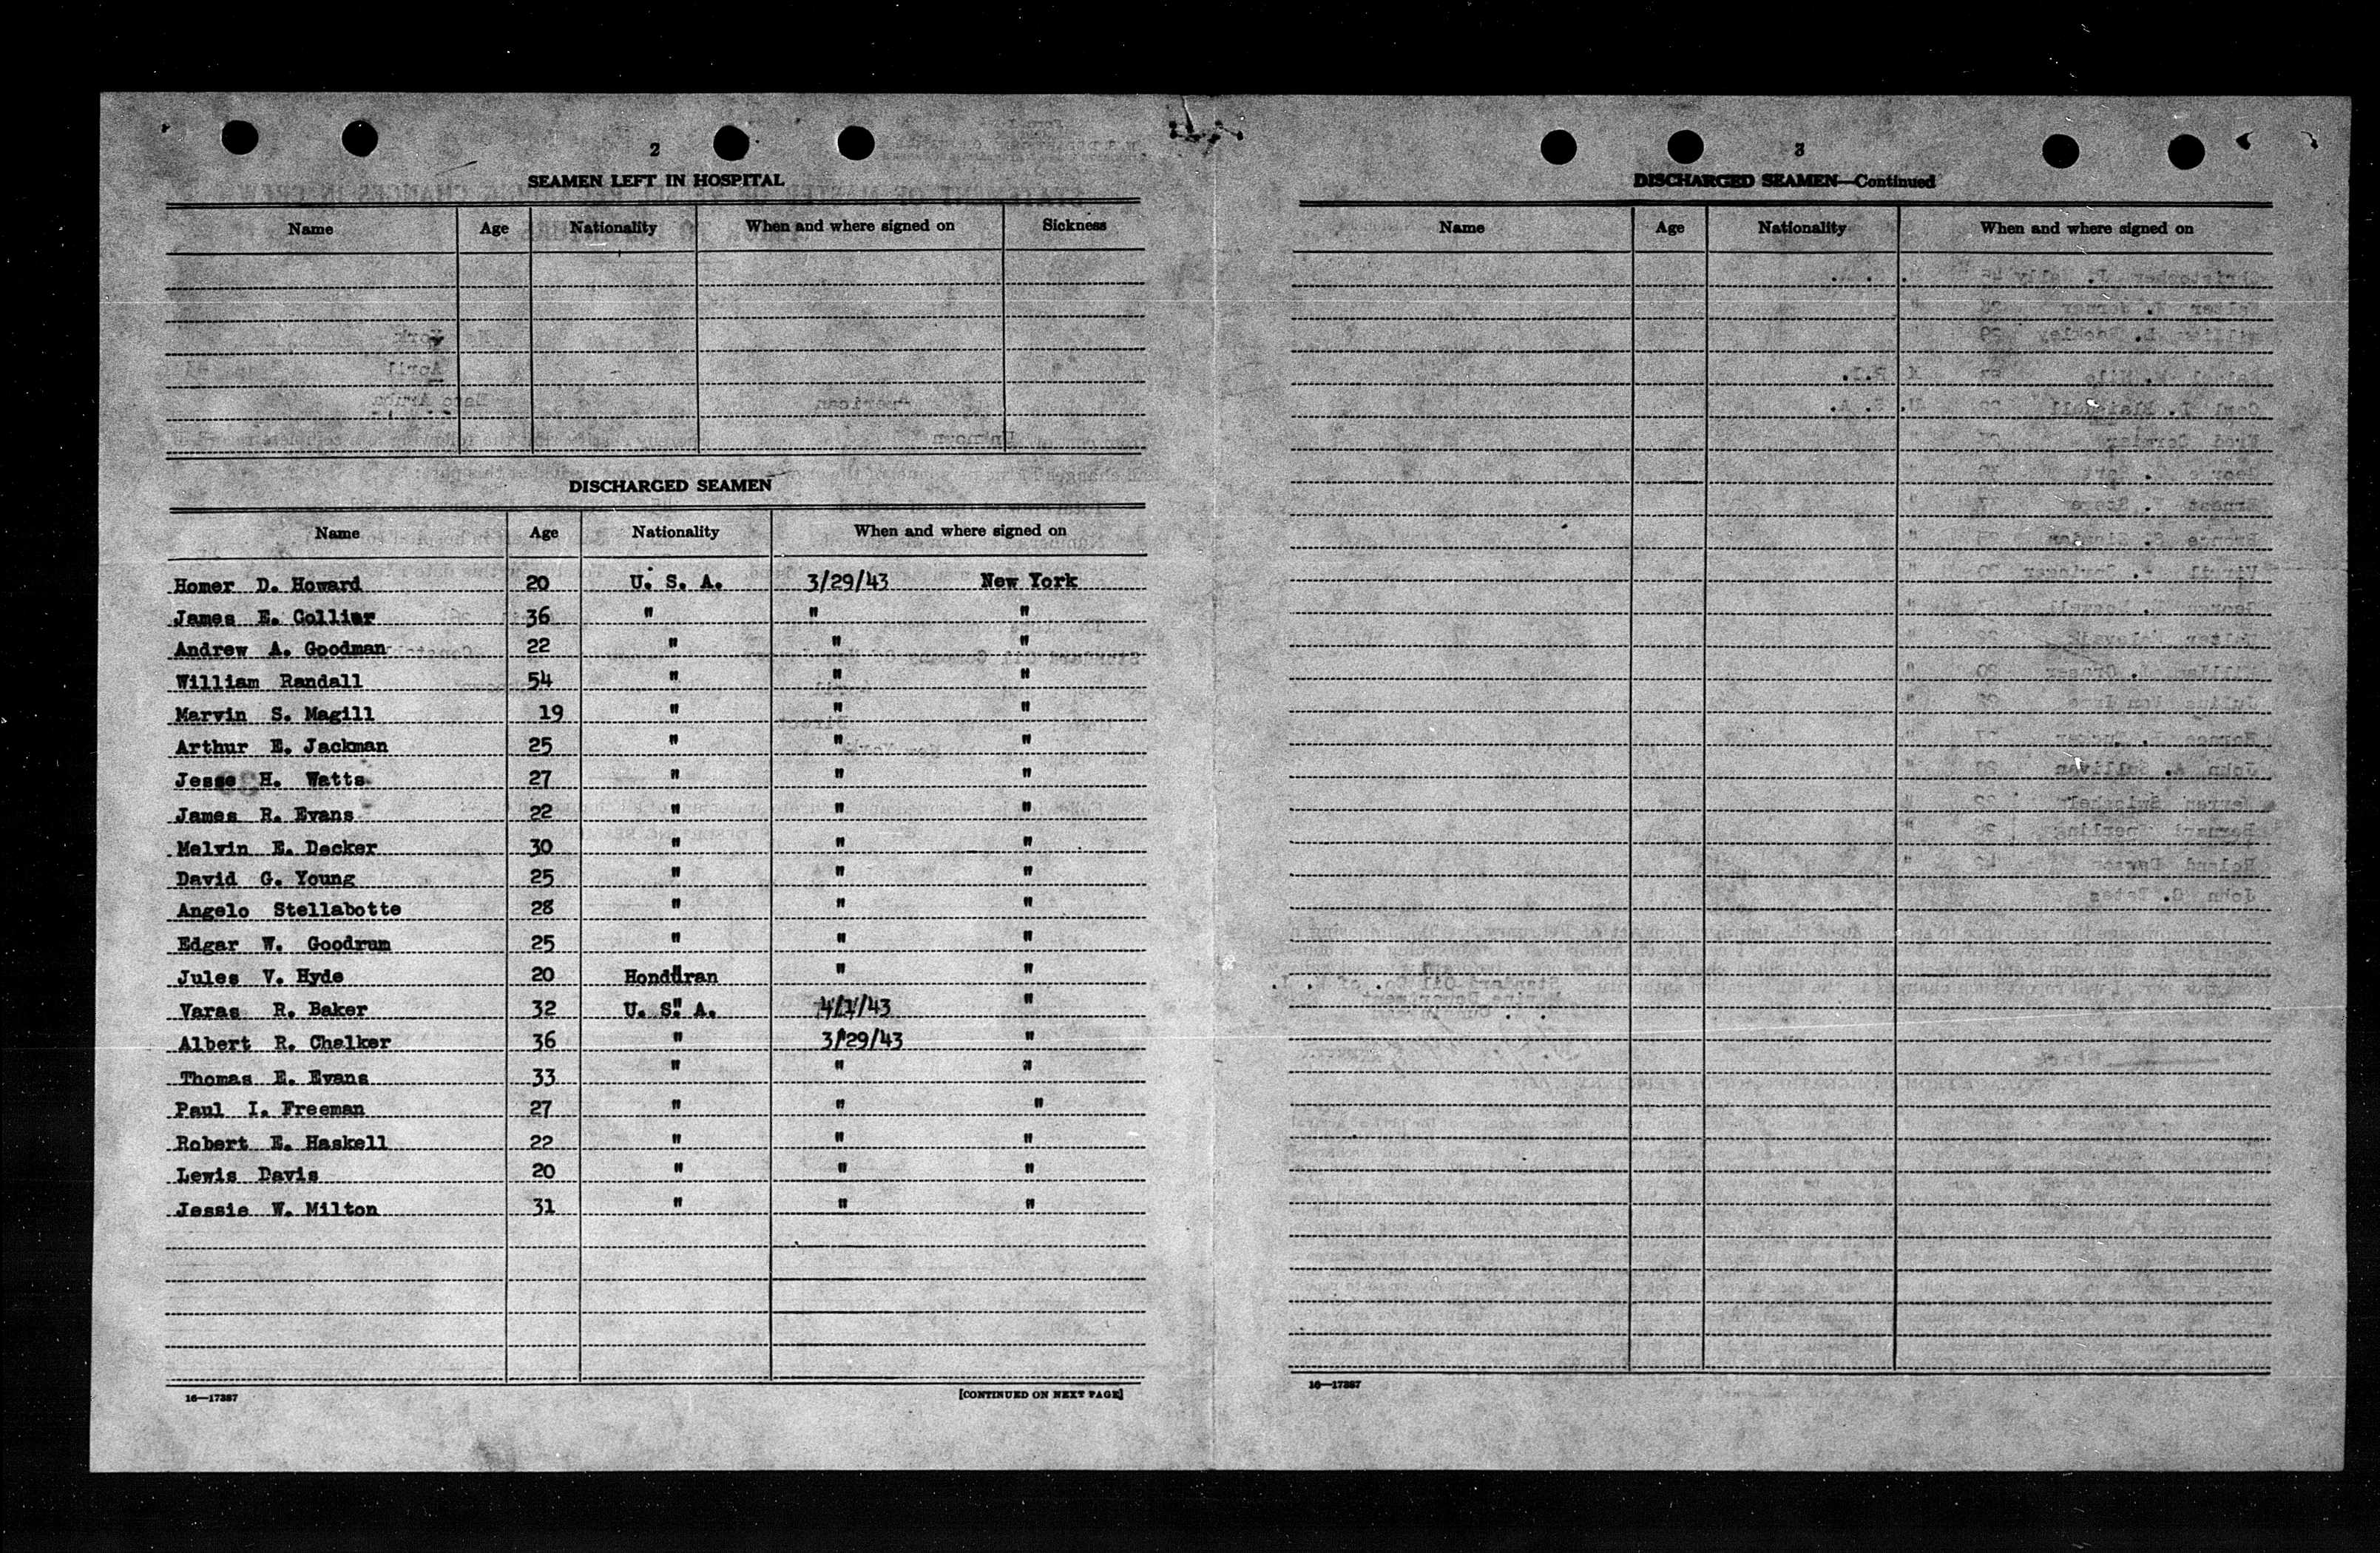 2
SEAMEN LEFT IN HOSPITAL
Name Age Nationality When and where signed on Sickness
DISCHARGED SEAMEN
Name Age Nationality When and where signed on
Homer D. Howard 20 U. S. A. 3/29/43 New York
James E. Collier 36 " " "
Andrew A. Goodman 22 " " "
William Randall 54 " " "
Marvin S. Magill 19 " " "
Arthur E. Jackman 25 " " "
Jesse H. Watts 27 " " "
James R. Evans 22 " " "
Melvin E. Decker 30 " " "
David G. Young 25 " " "
Angelo Stellabotte 28 " " "
Edgar W. Goodrum 25 " " "
Jules V. Hyde 20 Honduran " "
Varas R. Baker 32 U. S. A. 4/1/43 "
Albert R. Chalker 36 " 3/29/43 "
Thomas E. Evans 33 " " "
Paul I. Freeman 27 " " "
Robert E. Haskell 22 " " "
Lewis Davis 20 " " "
Jessie W. Milton 31 " " "
16—17387 [CONTINUED ON NEXT PAGE]
3
DISCHARGED SEAMEN—Continued
Name Age Nationality When and where signed on
16—17387